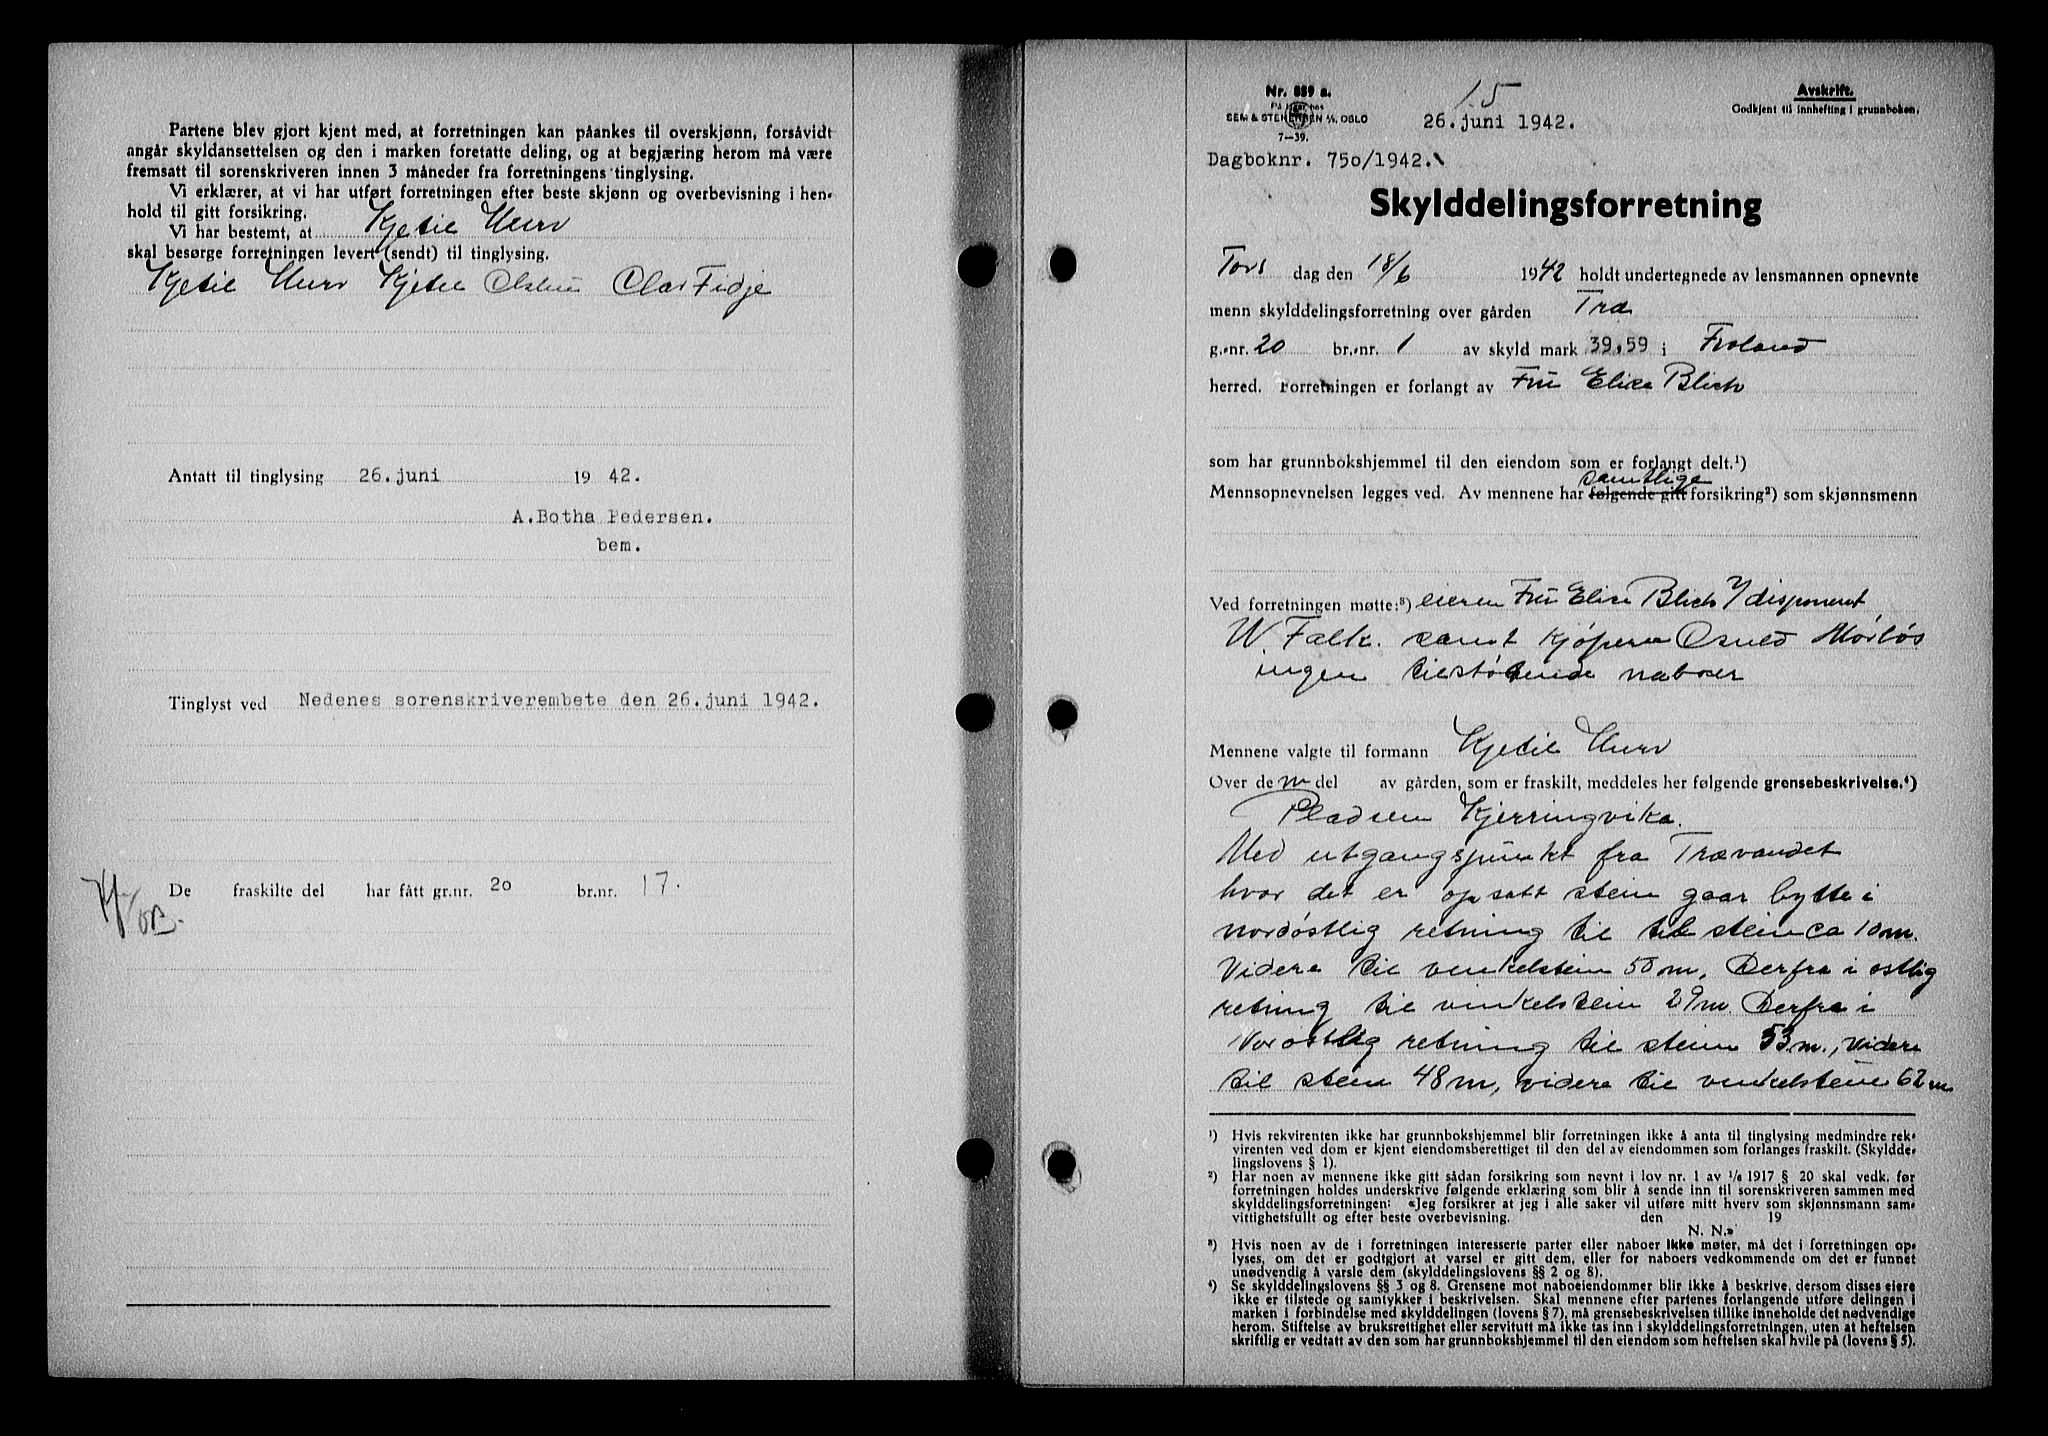 Partene blev gjort kjent med, at forretningen kan påankes til overskjønn, forsåvidt
angår skyldansettelsen og den i marken foretatte deling, og at begjæring herom må være
fremsatt til sorenskriveren innen 3 måneder fra forretningens tinglysing.
Vi erklærer, at vi har utført forretningen efter beste skjønn og overbevisning i hen-
hold til gitt forsikring.
Vi har bestemt, at Kjetil Hurv
skal besørge forretningen levert (sendt) til tinglysing.
Kjetil Hurv Kjetil Olav Fidje
Antatt til tinglysing 26. juni 1942.
A. Botha Pedersen.
bem.
Tinglyst ved Nedenes sorenskriverembete den 26. juni 1942.
De fraskilte del har fått gr.nr. 20 br.nr. 17.
OB.
Nr. 889 a.
På lager hos
SEM & STENERSEN A/S, OSLO
7—39.
15
26. juni 1942.
Avskrift.
Godkjent til innhefting i grunnboken.
Dagboknr. 750/1942.
Skylddelingsforretning
Tors dag den 18/6 1942 holdt undertegnede av lensmannen opnevnte
menn skylddelingsforretning over gården Træ
g.-nr. 20 br.-nr. 1 av skyld mark 39,59 i Froland
herred. Forretningen er forlangt av Fru Elise Blich
som har grunnbokshjemmel til den eiendom som er forlangt delt.¹)
samtlige
Mennsopnevnelsen legges ved. Av mennene har følgende gitt forsikring²) som skjønnsmenn
Ved forretningen møtte:³) eieren Fru Elise Blich v/disponent
W. Falk. samt kjøperen Osuld Mørløs
ingen tilstøtende naboer
Mennene valgte til formann Kjetil Hurv
Over de m del av gården, som er fraskilt, meddeles her følgende grensebeskrivelse.⁴)
Pladsen Kjerringvika.
Med utgangspunkt fra Trævandet
hvor det er opsatt stein gaar bytte i
nordøstlig retning til til stein ca 10 m.
Videre til vinkelstein 50 m, Derfra i ostlig
retning til vinkelstein 29 m Derfra i
Norostlig retning til stein 53 m, videre
til stein 48 m, videre til vinkelstein 62 m
¹) Hvis rekvirenten ikke har grunnbokshjemmel blir forretningen ikke å anta til tinglysing medmindre rek-
virenten ved dom er kjent eiendomsberettiget til den del av eiendommen som forlanges fraskilt. (Skyldde-
lingslovens § 1).
²) Har noen av mennene ikke gitt sådan forsikring som nevnt i lov nr. 1 av 1/6 1917 § 20 skal vedk. før
forretningen holdes underskrive følgende erklæring som blir å sende inn til sorenskriveren sammen med
skylddelingsforretningen: «Jeg forsikrer at jeg i alle saker vil utføre mitt hverv som skjønnsmann sam-
vittighetsfullt og efter beste overbevisning. den 19
N. N.»
³) Hvis noen av de i forretningen interesserte parter eller naboer ikke møter, må det i forretningen op-
lyses, om det er godtgjort at varsel er gitt dem, eller for naboers vedkommende om det er funnet
unødvendig å varsle dem (skylddelingslovens §§ 2 og 8).
⁴) Se skylddelingslovens §§ 3 og 8. Grensene mot naboeiendommer blir ikke å beskrive, dersom disses eiere
ikke er tilstede og samtykker i beskrivelsen. Skal mennene efter partenes forlangende utføre delingen i
marken i forbindelse med skylddelingen (lovens § 7), må grensebeskrivelsen tillike inneholde det nødvendige
herom. Stiftelse av bruksrettighet eller servitutt må ikke tas inn i skylddelingsforretningen, uten at heftelsen
skriftlig er vedtatt av den som har grunnbokshjemmel til den eiendom som heftelsen skal hvile på (lovens § 5).